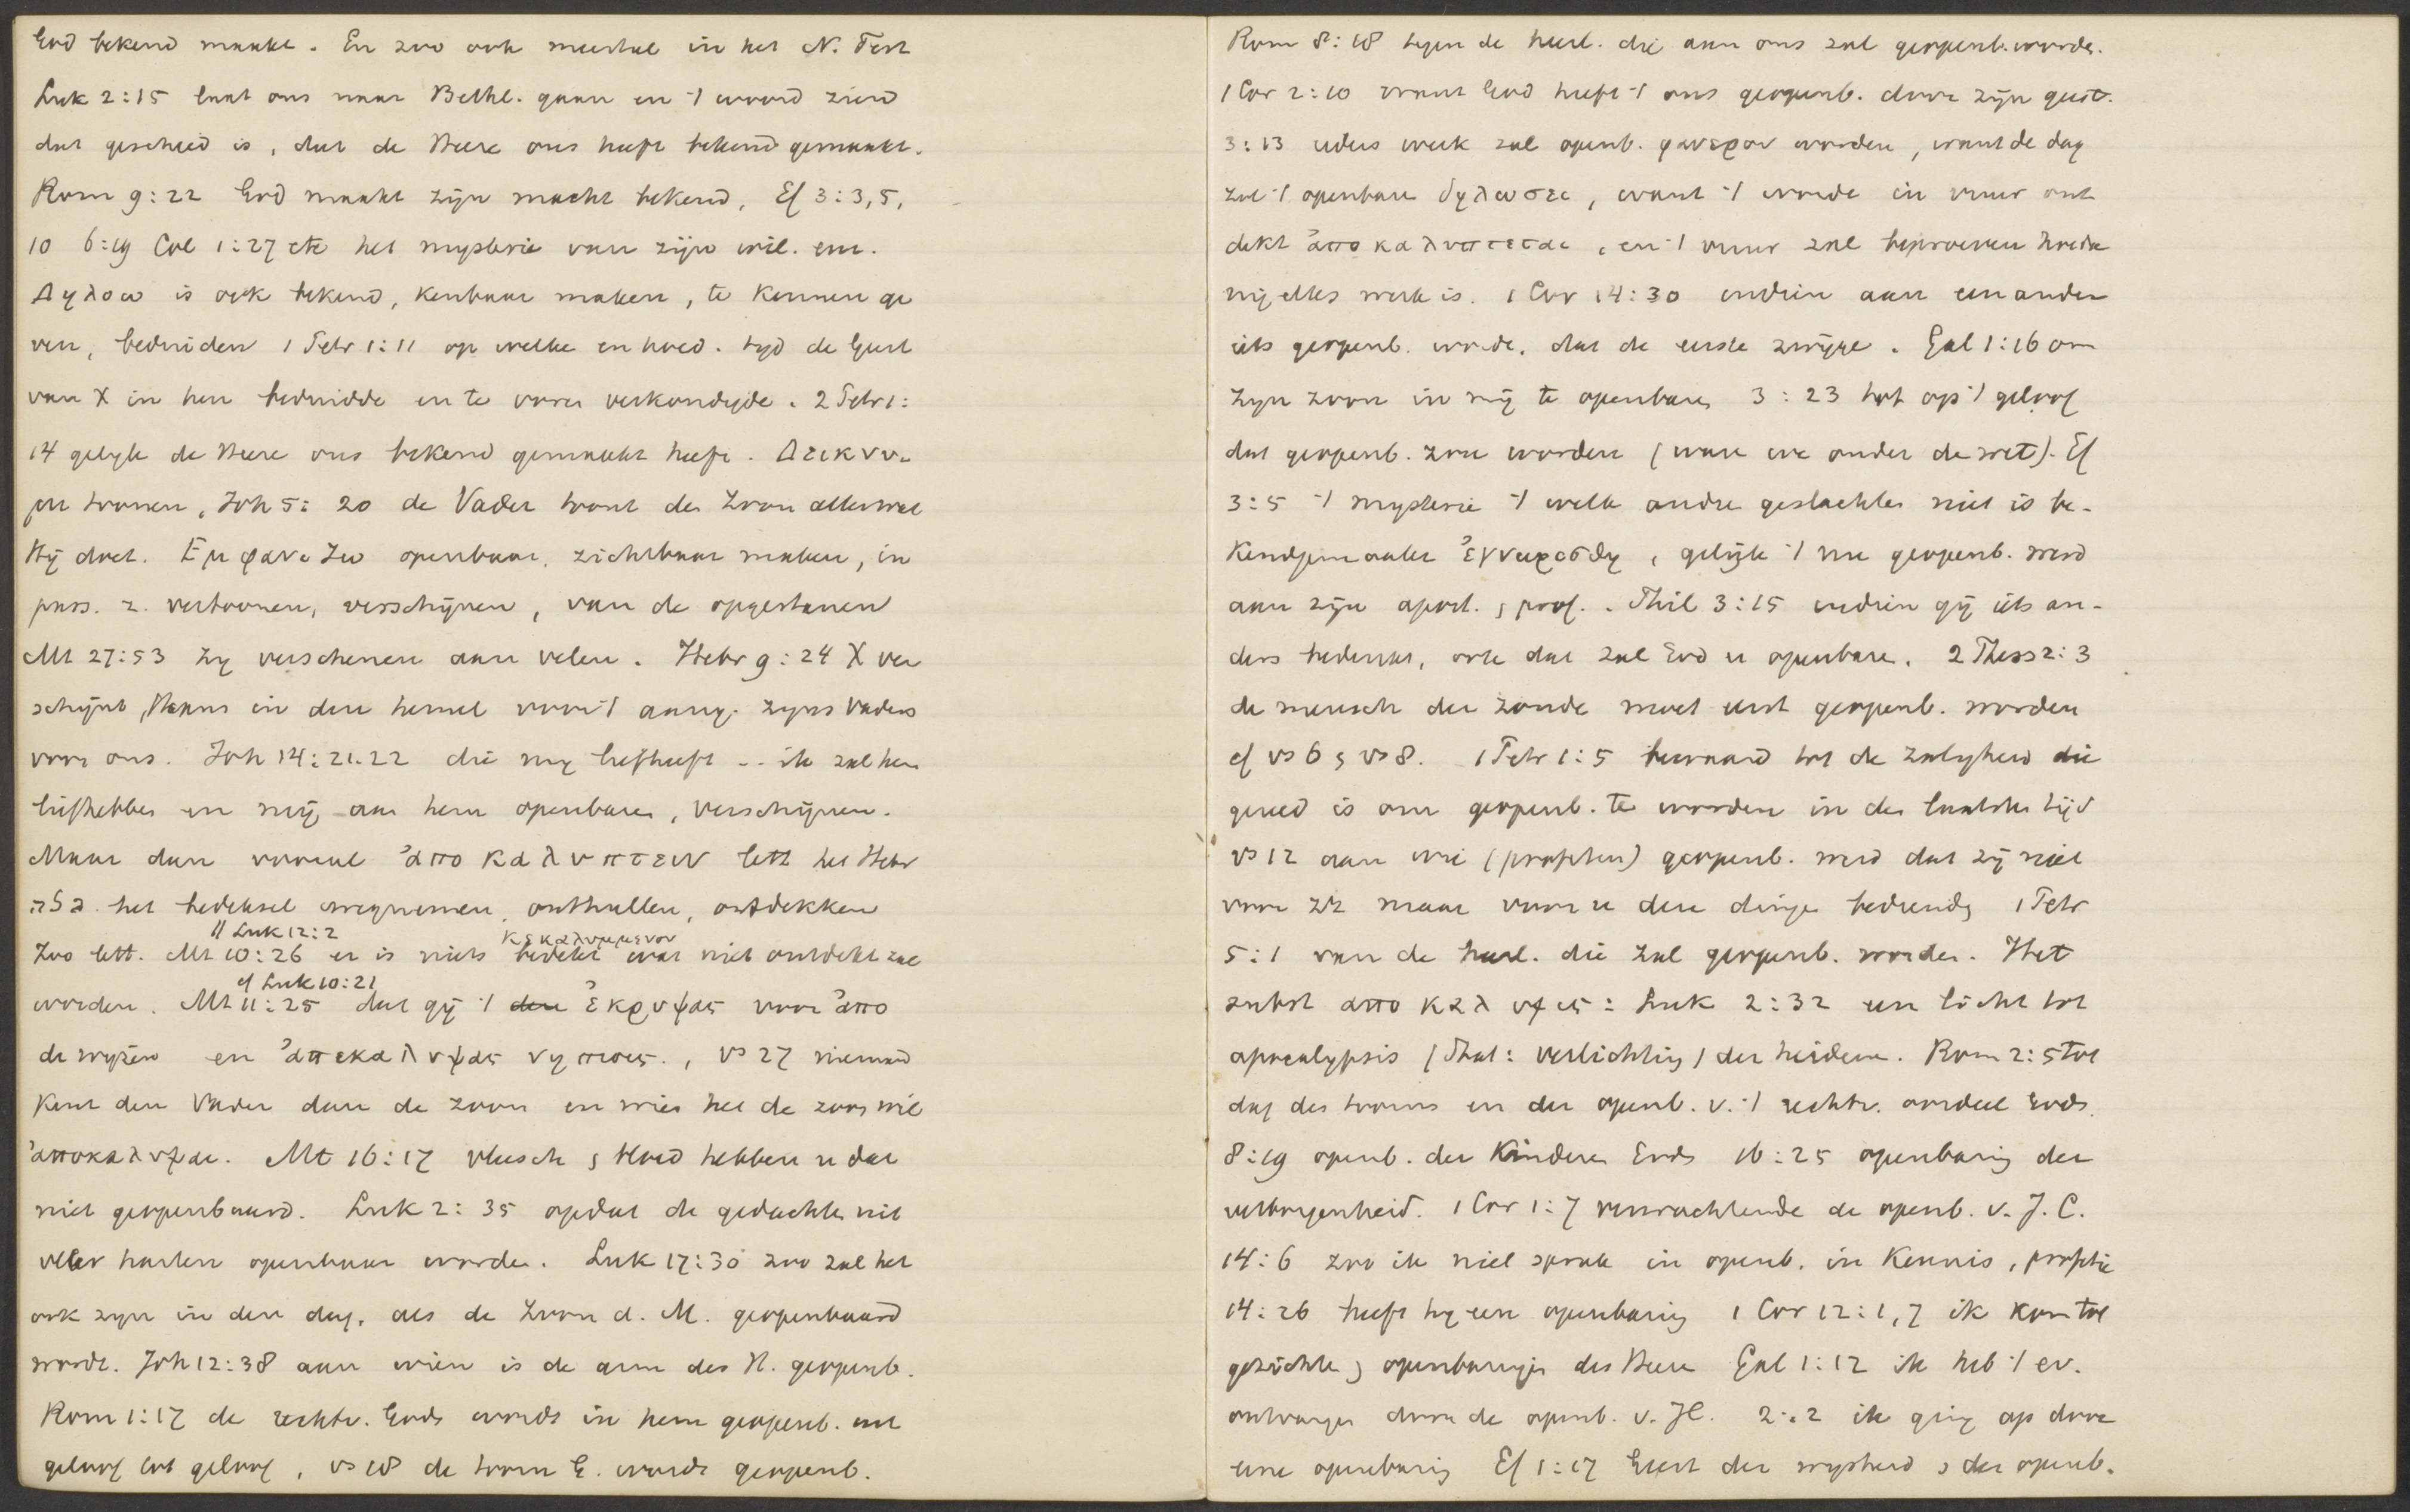 God bekend maakt. En zoo ook meestal in het N. Test
Luk 2:15 laat ons naar Bethl. gaan en 't woord zien
dat geschied is, dat de Heere ons heeft bekend gemaakt.
Rom 9:22 God maakt zijn macht bekend, Ef 3:3,5,
10 6:19 Col 1:27 etc het mysterie van zijn wil. enz.
Δηλοω is ook bekend, kenbaar maken, te kennen ge
ven, beduiden 1 Petr 1:11 op welke en hoed. tijd de Geest
van X in hen beduidde en te voren verkondigde. 2 Petr 1:
14 gelijk de Heere ons bekend gemaakt heeft. Δεικνυ-
μι toonen, Joh 5:20 de Vader toont den Zoon alles wat
Hij doet. Εμφανιζω openbaar, zichtbaar maken, in
pass. z. vertoonen, verschijnen, van de opgestanen
Mt 27:53 zij verschenen aan velen. Hebr 9:24 X ver
schijnt, thans in den hemel voor 't aang. zijns Vaders
voor ons. Joh 14:21.22 die mij liefheeft -- ik zal hem
liefhebben en mij aan hem openbaren, verschijnen.
Maar dan vooral ἀποκαλυπτειν lett het Hebr
גלה het bedeksel wegnemen, onthullen, ontdekken
// Luk 12:2 κεκαλυμμενον
Zoo lett. Mt 10:26 er is niets bedekt wat niet ontdekt zal
cf Luk 10:21
worden. Mt 11:25 dat gij 't den ἐκρυψας voor ἀπο
de wijzen en ἀπεκαλυψας νηπιοις., vs 27 niemand
kent den Vader dan de zoon en wien het de zoon wil
ἀποκαλυψαι. Mt 16:17 vleesch & bloed hebben u dat
niet geopenbaard. Luk 2:35 opdat de gedachten uit
veler harten openbaar worden. Luk 17:30 zoo zal het
ook zijn in den dag, als de Zoon d. M. geopenbaard
wordt. Joh 12:38 aan wien is de arm des H. geopenb.
Rom 1:17 de rechtv. Gods wordt in hem geopenb. uit
geloof tot geloof, vs 18 de toorn G. wordt geopenb.
Rom 8:18 tegen de heerl. die aan ons zal geopenb. worden.
1 Cor 2:10 want God heeft 't ons geopenb. door zijn geest.
3:13 ieders werk zal openb. φανερον worden, want de dag
zal 't openbaren δηλωσει, want 't wordt in vuur ont
dekt ἀποκαλυπτεται, en 't vuur zal beproeven hoeda
nig elks werk is. 1 Cor 14:30 indien aan een ander
iets geopenb. wordt, dat de eerste zwijge. Gal 1:16 om
zijn zoon in mij te openbaren 3:23 tot op 't geloof
dat geopenb. zou worden (waren we onder de wet). Ef
3:5 't mysterie 't welk andre geslachten niet is be-
kendgemaakt ἐγνωρισθη, gelijk 't nu geopenb. werd
aan zijn apost. & prof.. Phil 3:15 indien gij iets an-
ders bedenkt, ook dat zal God u openbaren. 2 Thess 2:3
de mensch der zonde moet eerst geopenb. worden
cf vs 6 & vs 8. 1 Petr 1:5 bewaard tot de zaligheid die
gereed is om geopenb. te worden in den laatsten tijd
vs 12 aan wie (profeten) geopenb. werd dat zij niet
voor zich maar voor u deze dingen bedienden 1 Petr
5:1 van de heerl. die zal geopenb. worden. Het
subst αποκαλυψις: Luk 2:32 een licht tot
apocalypsis (Stat: verlichting) der heidenen. Rom 2:5 Tot
dag des toorns en der openb. v. 't rechtv. oordeel Gods.
8:19 openb. der Kinderen Gods 16:25 openbaring der
verborgenheid. 1 Cor 1:7 verwachtende de openb. v. J. C.
14:6 zoo ik niet sprak in openb. in kennis, profetie
14:26 heeft hij een openbaring 1 Cor 12:1,7 ik kom tot
gezichten & openbaringen des Heeren Gal 1:12 ik heb 't ev.
ontvangen door de openb. v. JC. 2:2 ik ging op door
eene openbaring Ef 1:17 Geest der wijsheid & der openb.